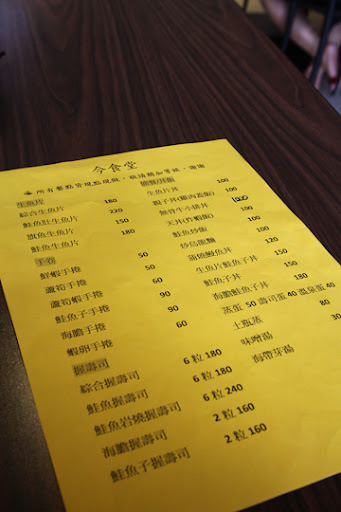 今食堂
所有餐點皆現點現做,敬請稍加等候,謝謝
生魚片
綜合生魚片 180
鮭魚肚生魚片 220
旗魚生魚片 150
鮭魚生魚片 180
手卷
鮮蝦手捲 50
蘆筍手捲 50
蘆筍蝦手捲 60
鮭魚子手捲 90
海膽手捲 90
蝦卵手捲 60
握壽司
綜合握壽司 6 粒 180
鮭魚握壽司 6 粒 180
鮭魚岩燒握壽司 6 粒 240
海膽握壽司 2 粒 160
鮭魚子握壽司 2 粒 160
生魚片丼 100
親子丼(雞肉蓋飯) 100
無骨牛小排丼
天丼(炸蝦飯) 100
鮭魚炒飯 100
炒烏龍麵
蒲燒鰻魚丼
生魚片鮭魚子丼 150
鮭魚子丼 150
海膽鮭魚子丼 180
蒸蛋 50 壽司蛋 40 溫泉蛋 40
土瓶蒸 80
味噌湯 30
海帶芽湯